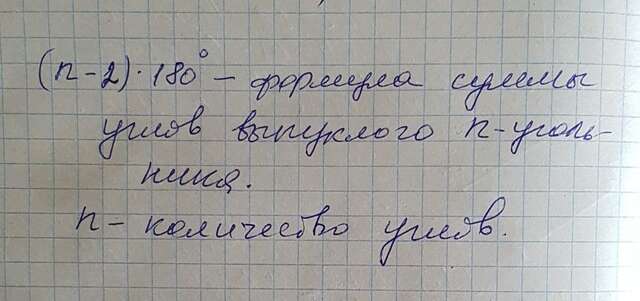 (n-2)·180° - формула суммы
углов выпуклого n-уголь-
ника.
n- количество углов.